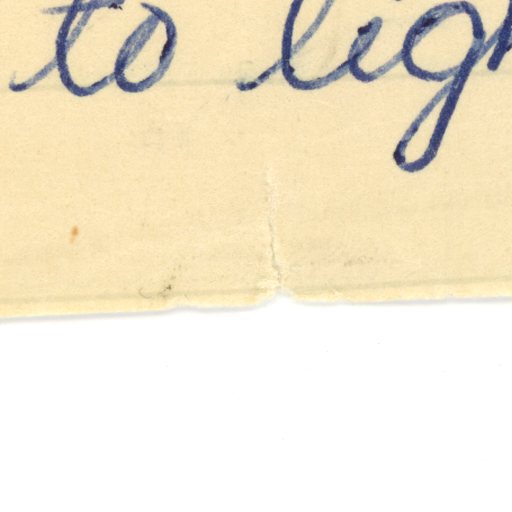 to ligh